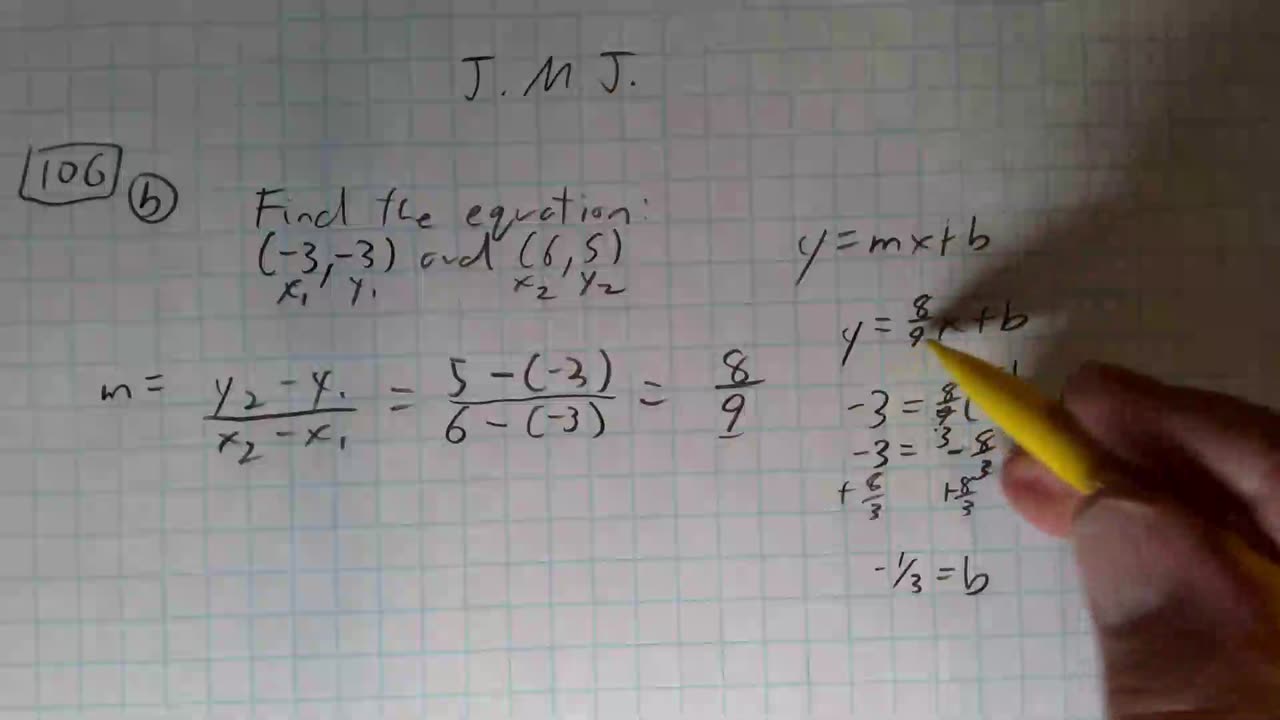 J.M J.
106 b
Find the equation:
(-3,-3) and (6,5)
x₁ y₁ x₂ y₂
m = y₂ - y₁ / x₂ - x₁ = 5 - (-3) / 6 - (-3) = 8/9
y = mx+b
y = 8/9 x + b
-3 = 8/9 (
-3 = -8/3
+8/3 +8/3
-1/3 = b